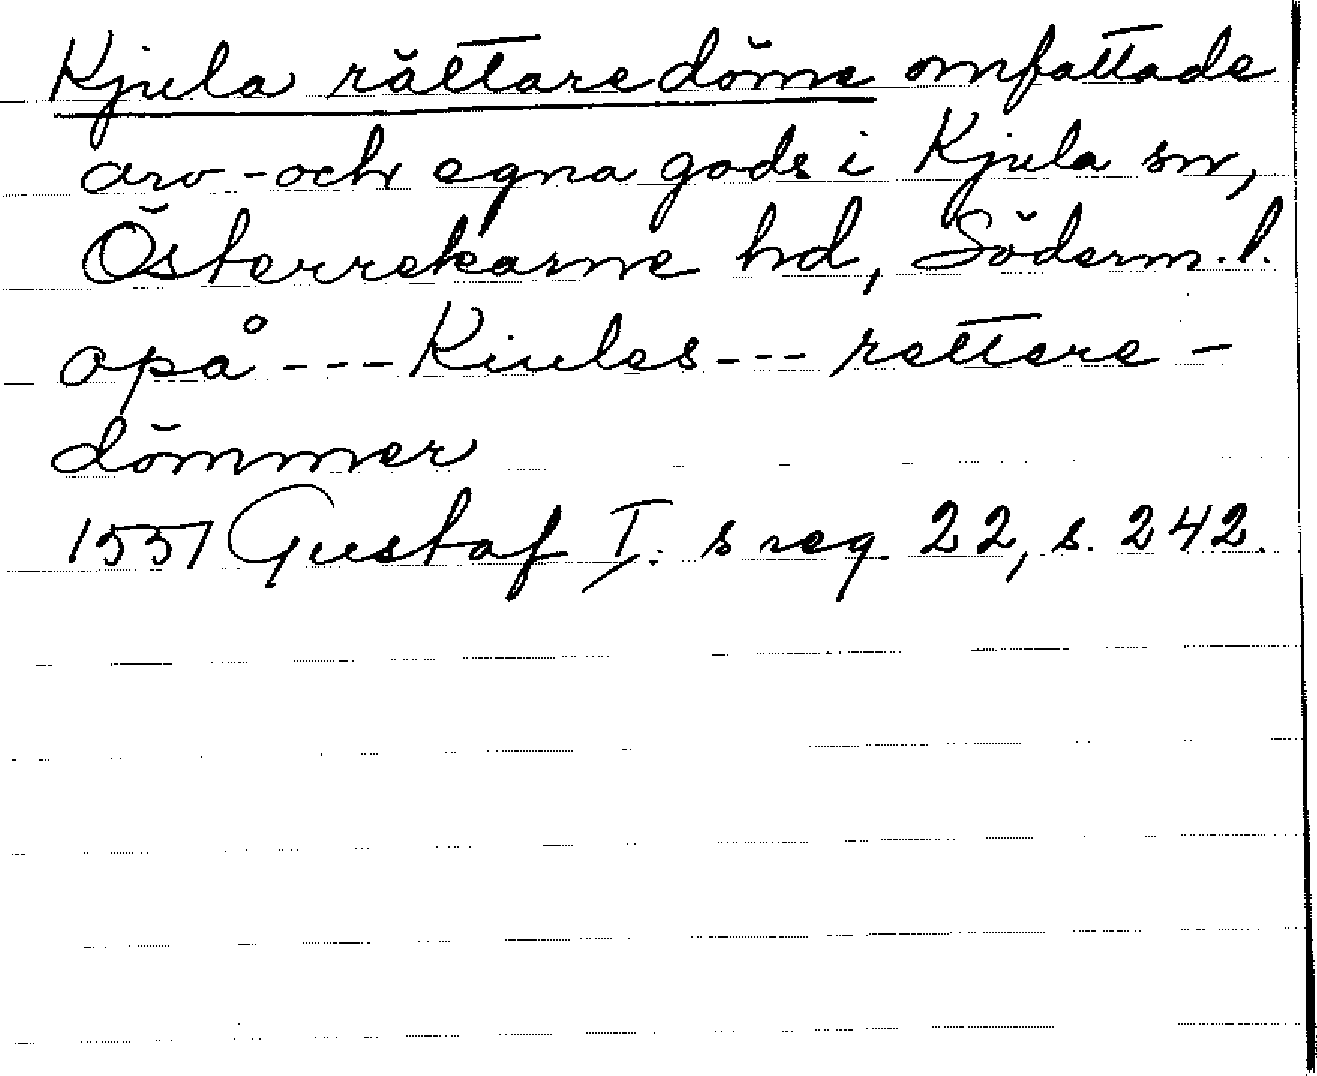 Kjula rättaredöme omfattade
arv- och egna gods i Kjula sn,
Österrekarne hd, Söderm. l.
opå --- Kiules --- rettere-
dömmer
1557 Gustaf I:s reg 22, s. 242.